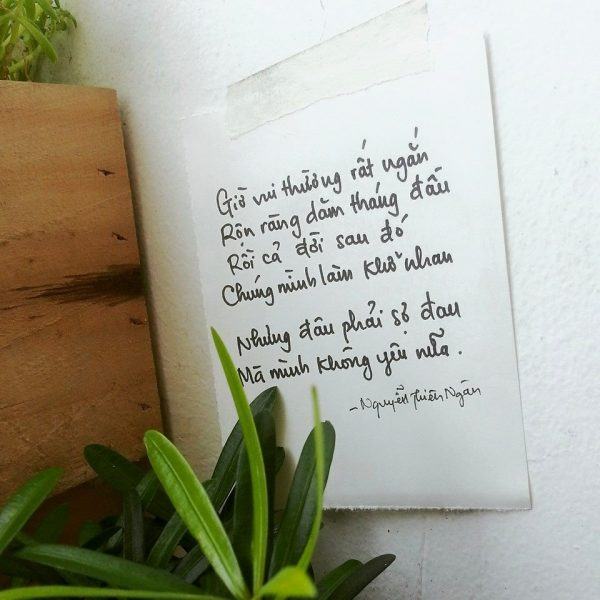 Giờ vui thường rất ngắn
Rộn ràng dăm tháng đầu
Rồi cả đời sau đó
Chúng mình làm khổ nhau
Nhưng đâu phải sợ đau
Mà mình không yêu nữa.
- Nguyễn Thiên Ngân